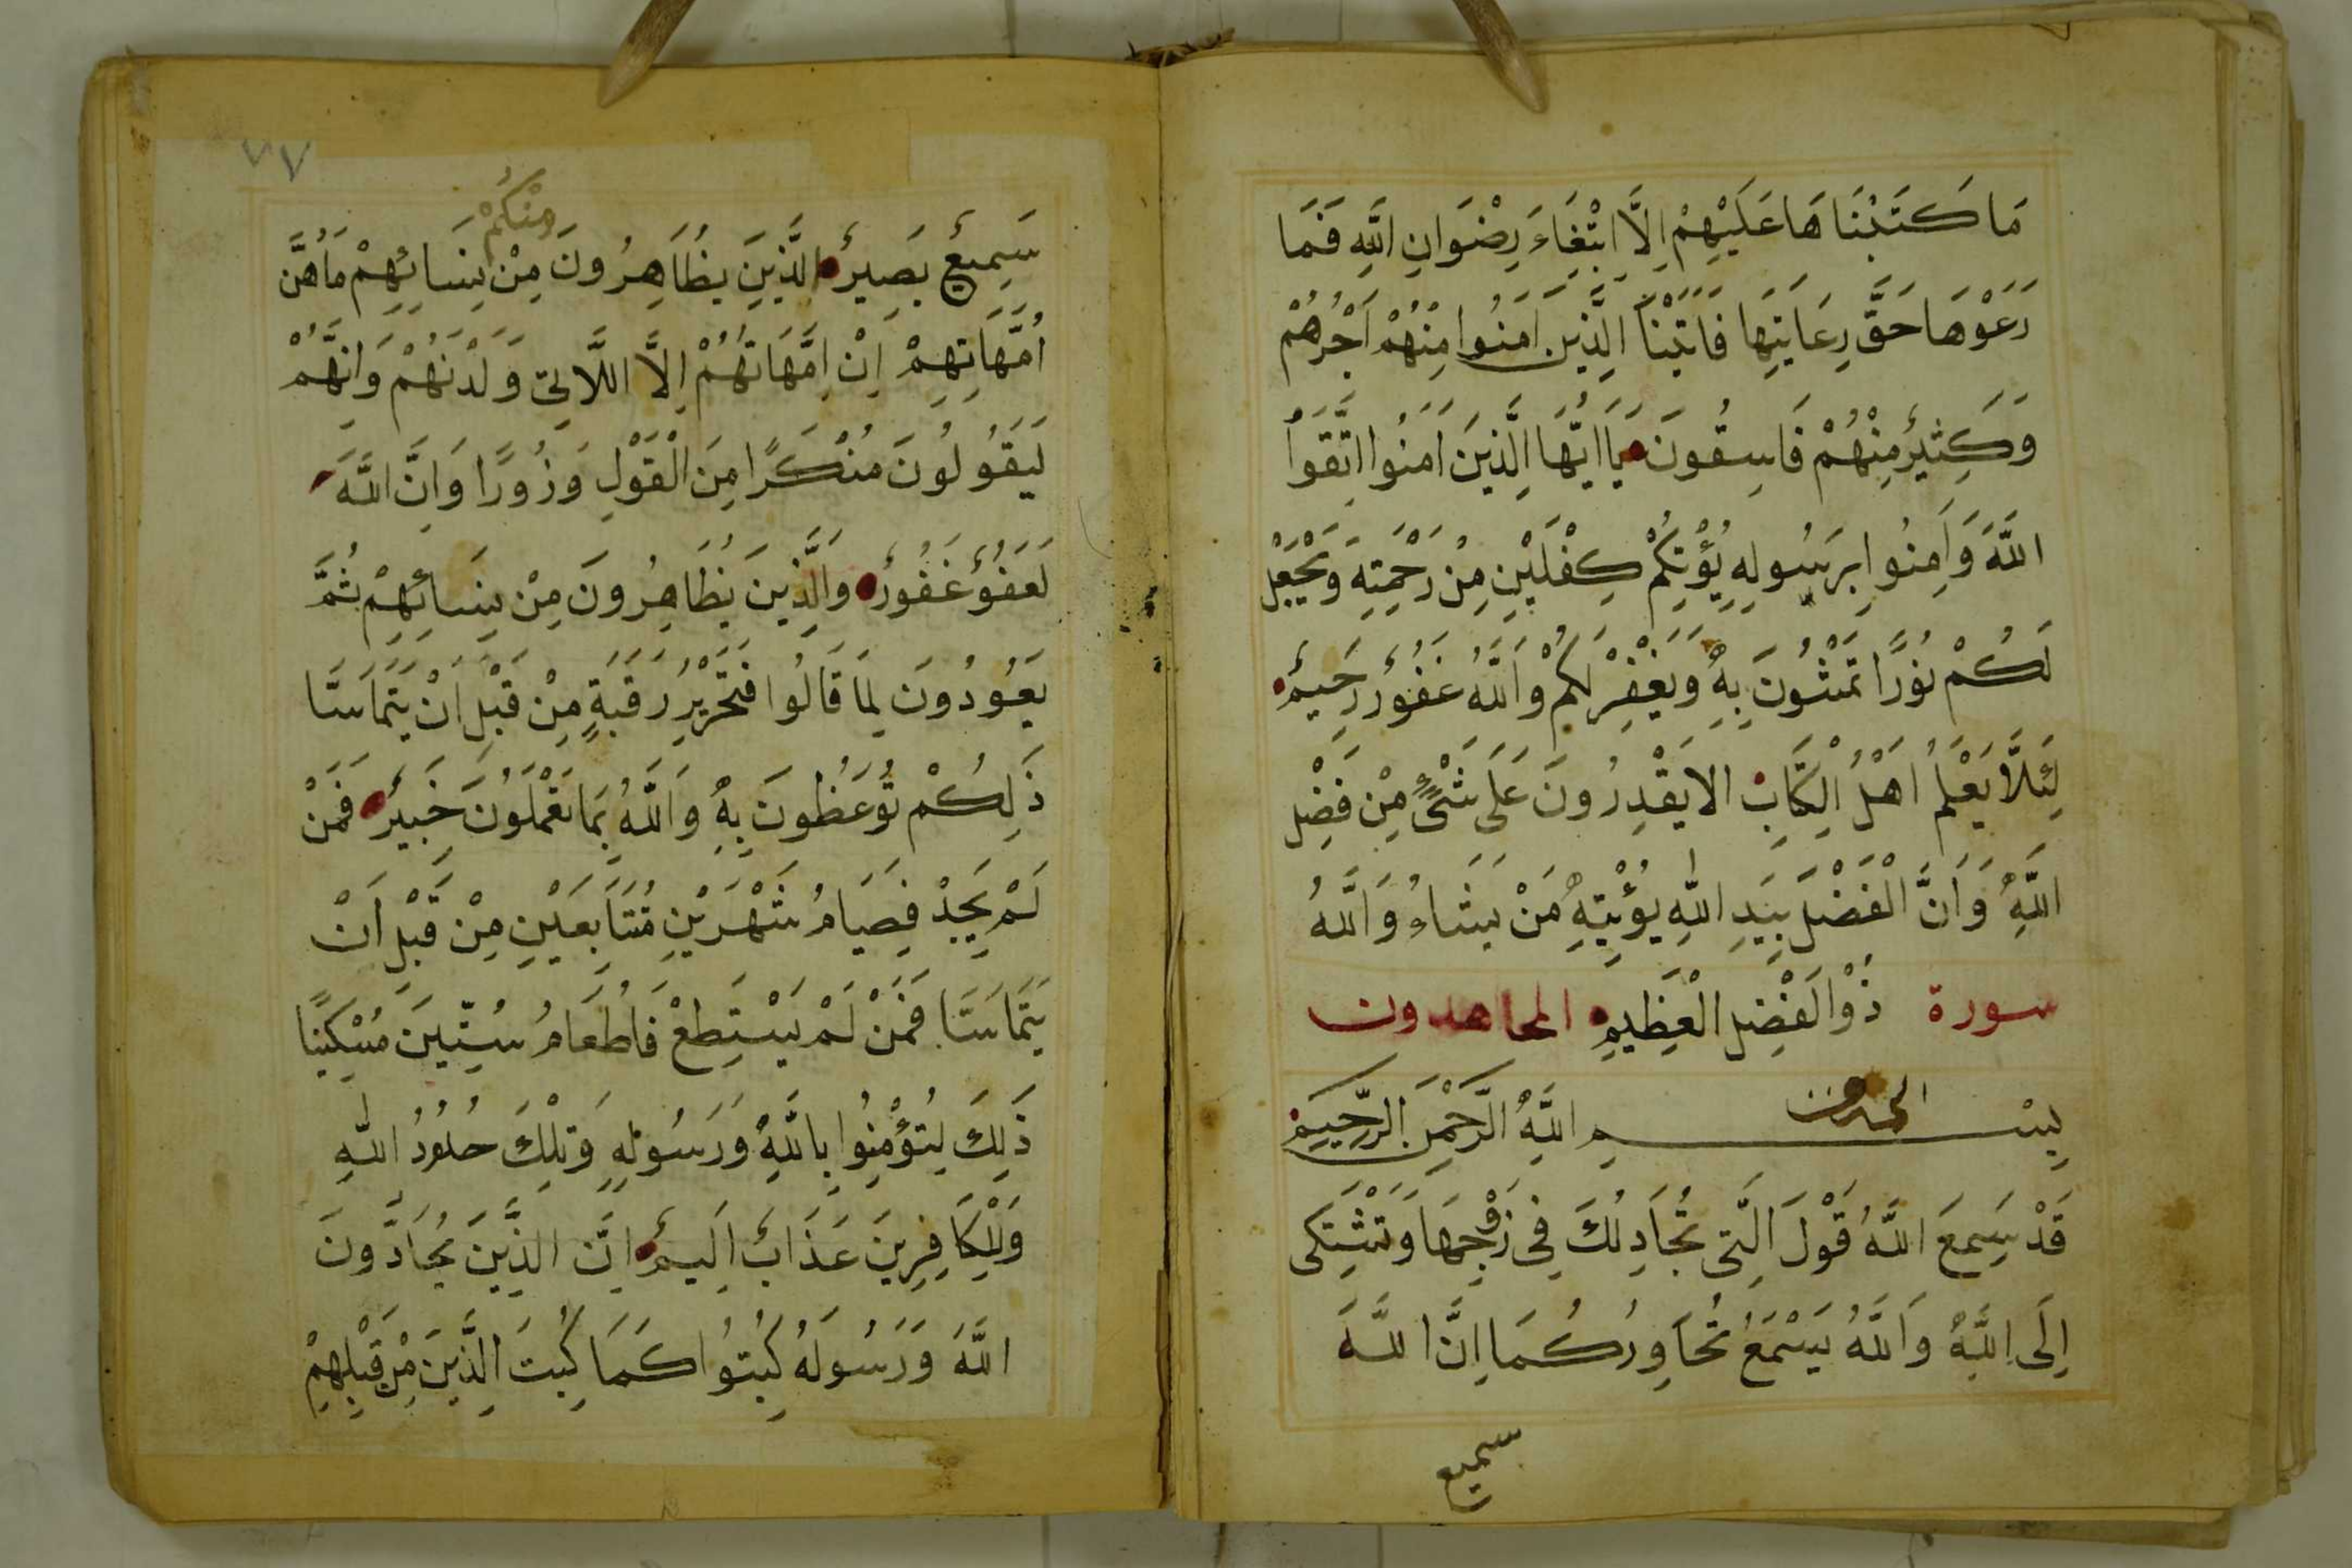 مَا كَتَبْنَاهَا عَلَيْهِمْ اِلَّا ابْتِغَاءَ رِضْوَانِ اللّٰهِ فَمَا
رَعَوْهَا حَقَّ رِعَايَتِهَا فَاٰتَيْنَا الَّذِينَ اٰمَنُوا مِنْهُمْ اَجْرَهُمْ
وَكَثِيرٌ مِنْهُمْ فَاسِقُونَ يَا اَيُّهَا الَّذِينَ اٰمَنُوا اتَّقُوا
اللّٰهَ وَاٰمِنُوا بِرَسُولِهِ يُؤْتِكُمْ كِفْلَيْنِ مِنْ رَحْمَتِهِ وَيَجْعَل
لَكُمْ نُورًا تَمْشُونَ بِهِ وَيَغْفِرْ لَكُمْ وَاللّٰهُ غَفُورٌ رَحِيمٌ
لِئَلَّا يَعْلَمَ اَهْلُ الْكِتَابِ الا يَقْدِرُونَ عَلَى شَيْءٍ مِنْ فَضْلِ
اللّٰهِ وَاَنَّ الْفَضْلَ بِيَدِ اللّٰهِ يُؤْتِيهِ مَنْ يَشَاءُ وَاللّٰهُ
سورة ذُوْالْفَضْلِ الْعَظِيمِ المجاهدون
بِسْمِ اللّٰهِ الرَّحْمٰنِ الرَّحِيمِ
قَدْ سَمِعَ اللّٰهُ قَوْلَ الَّتِى تُجَادِلُكَ فِى زَوْجِهَا وَتَشْتَكِى
اِلَى اللّٰهِ وَاللّٰهُ يَسْمَعُ تَحَاوُرَكُمَا اِنَّ اللّٰهَ
سميع
٧٧
مِنْكُمْ
سَمِيعٌ بَصِيرٌ الَّذِينَ يُظَاهِرُونَ مِنْ نِسَائِهِمْ مَا هُنَّ
اُمَّهَاتِهِمْ اِنْ اُمَّهَاتُهُمْ اِلَّا اللَّاتِى وَلَدْنَهُمْ وَاِنَّهُمْ
لَيَقُولُونَ مُنْكَرًا مِنَ الْقَوْلِ وَزُورًا وَاِنَّ اللّٰهَ
لَعَفُوٌّ غَفُورٌ وَالَّذِينَ يُظَاهِرُونَ مِنْ نِسَائِهِمْ ثُمَّ
يَعُودُونَ لِمَا قَالُوا فَتَحْرِيرُ رَقَبَةٍ مِنْ قَبْلِ اَنْ يَتَمَاسَّا
ذَلِكُمْ تُوعَظُونَ بِهِ وَاللّٰهُ بِمَا تَعْمَلُونَ خَبِيرٌ فَمَنْ
لَمْ يَجِدْ فَصِيَامُ شَهْرَيْنِ مُتَتَابِعَيْنِ مِنْ قَبْلِ اَنْ
يَتَمَاسَّا فَمَنْ لَمْ يَسْتَطِعْ فَاطْعَامُ سِتِّينَ مِسْكِينًا
ذَلِكَ لِتُؤْمِنُوا بِاللّٰهِ وَرَسُولِهِ وَتِلْكَ حُدُودُ اللّٰهِ
وَلِلْكَافِرِينَ عَذَابٌ اَلِيمٌ اِنَّ الَّذِينَ يُحَادُّونَ
اللّٰهَ وَرَسُولَهُ كُبِتُوا كَمَا كُبِتَ الَّذِينَ مِنْ قَبْلِهِمْ